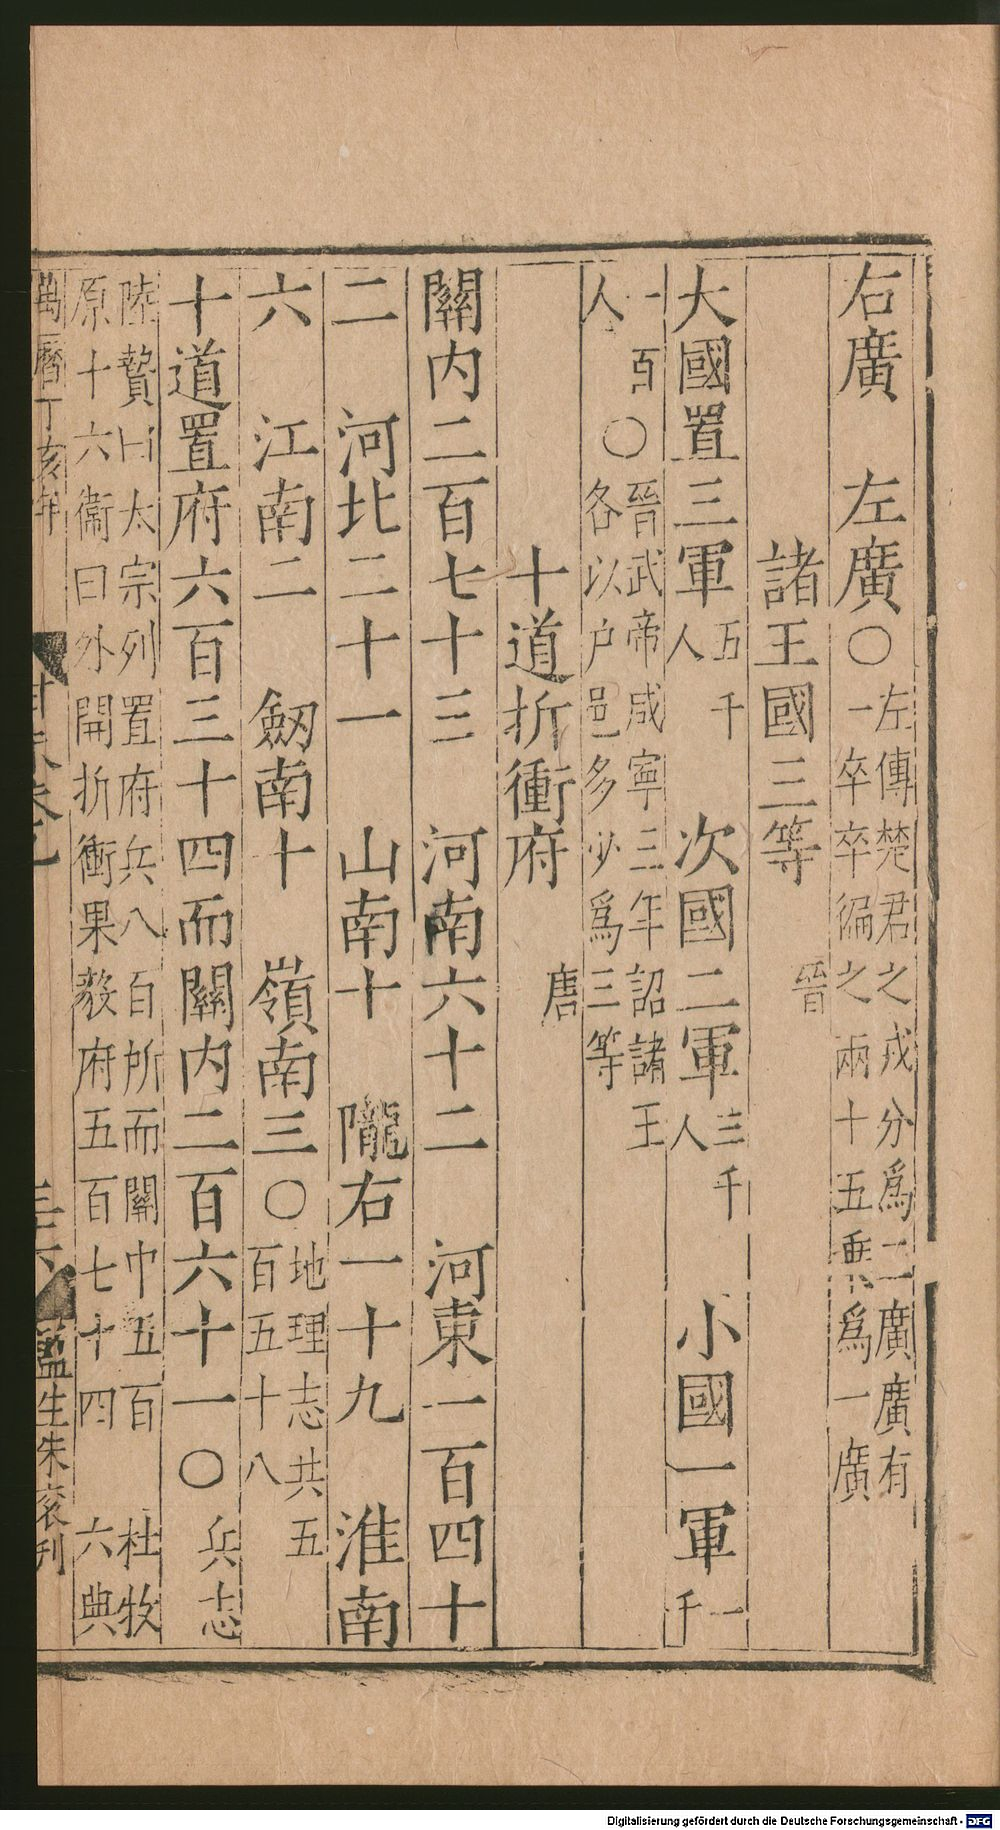 右廣　左廣〇左傳楚君之戎分爲二廣廣有一卒卒徧之兩十五乗爲一廣
諸王國三等　晉
大國置三軍五千人　次國二軍三千人　小國一軍一千
一百人〇晉武帝咸寧三年詔諸王各以户邑多少爲三等
十道折衝府　唐
關内二百七十三　河南六十二　河東一百四十
二　河北二十一　山南十　隴右一十九　淮南
六　江南二　劔南十　嶺南三〇地理志共五百五十八
十道置府六百三十四而關内二百六十一〇兵志
陸贄曰太宗列置府兵八百所而關中五百　杜牧
原十六衞曰外開折衝果毅府五百七十四　六典
萬曆丁亥年
三六
監生朱衮刊
Digitalisierung gefördert durch die Deutsche Forschungsgemeinschaft - DFG